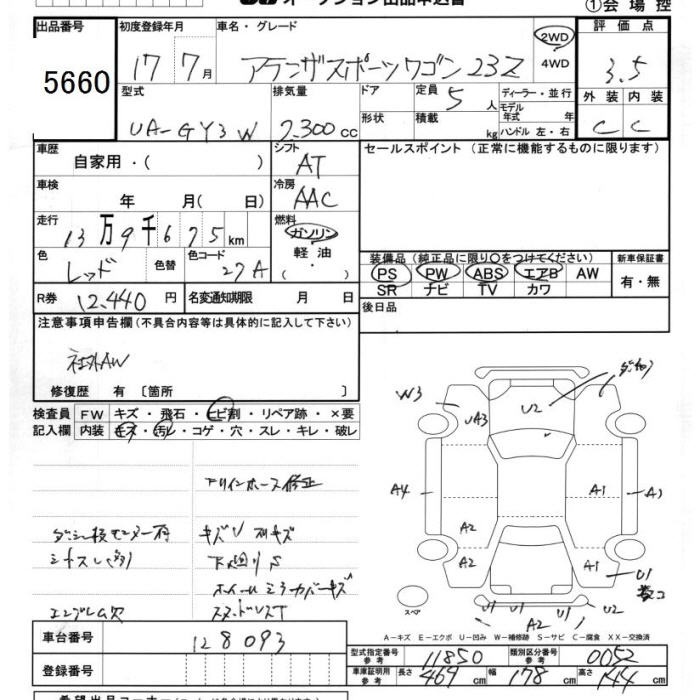 オークション出品申込書 ①会場控
出品番号 5660
初度登録年月 17 7月
車名・グレード アテンザスポーツワゴン 23Z
2WD
4WD
評価点 3.5
外装 内装
C C
型式 UA-GY3W
排気量 2,300cc
ドア
形状
定員 5人
積載 kg
ディーラー・並行
モデル年式 年式
ハンドル 左・右
車歴 自家用・( )
シフト AT
セールスポイント (正常に機能するものに限ります)
車検 年 月( 日)
冷房 AAC
走行 13万9千675km
燃料 ガソリン
軽油・
( )
色 レッド 色替 色コード 27A
装備品 (純正品に限り○をつけてください) 新車保証書
PS PW ABS エアB AW
SR ナビ TV カワ
有・無
R券 12,440円 名変通知期限 月 日
後日品
注意事項申告欄 (不具合内容等は具体的に記入して下さい)
社外AW
修復歴 有 〔箇所 〕
検査員 FW キズ・飛石・ヒビ割・リペア跡・×要
記入欄 内装 キズ・汚レ・コゲ・穴・スレ・キレ・破レ
キズU
エンブレム欠
W3 UA3 U2
A4 A1 A3
A2
A2 A1 U1
U1 U1 U1 U2
A2
スペア
A-キズ E-エクボ U-凹み W-補修跡 S-サビ C-腐食 XX-交換済
車台番号 128093
型式指定番号 参考 11850 類別区分番号 参考 0052
登録番号
車庫証明用 参考 長さ 469cm 幅 178cm 高さ 144cm